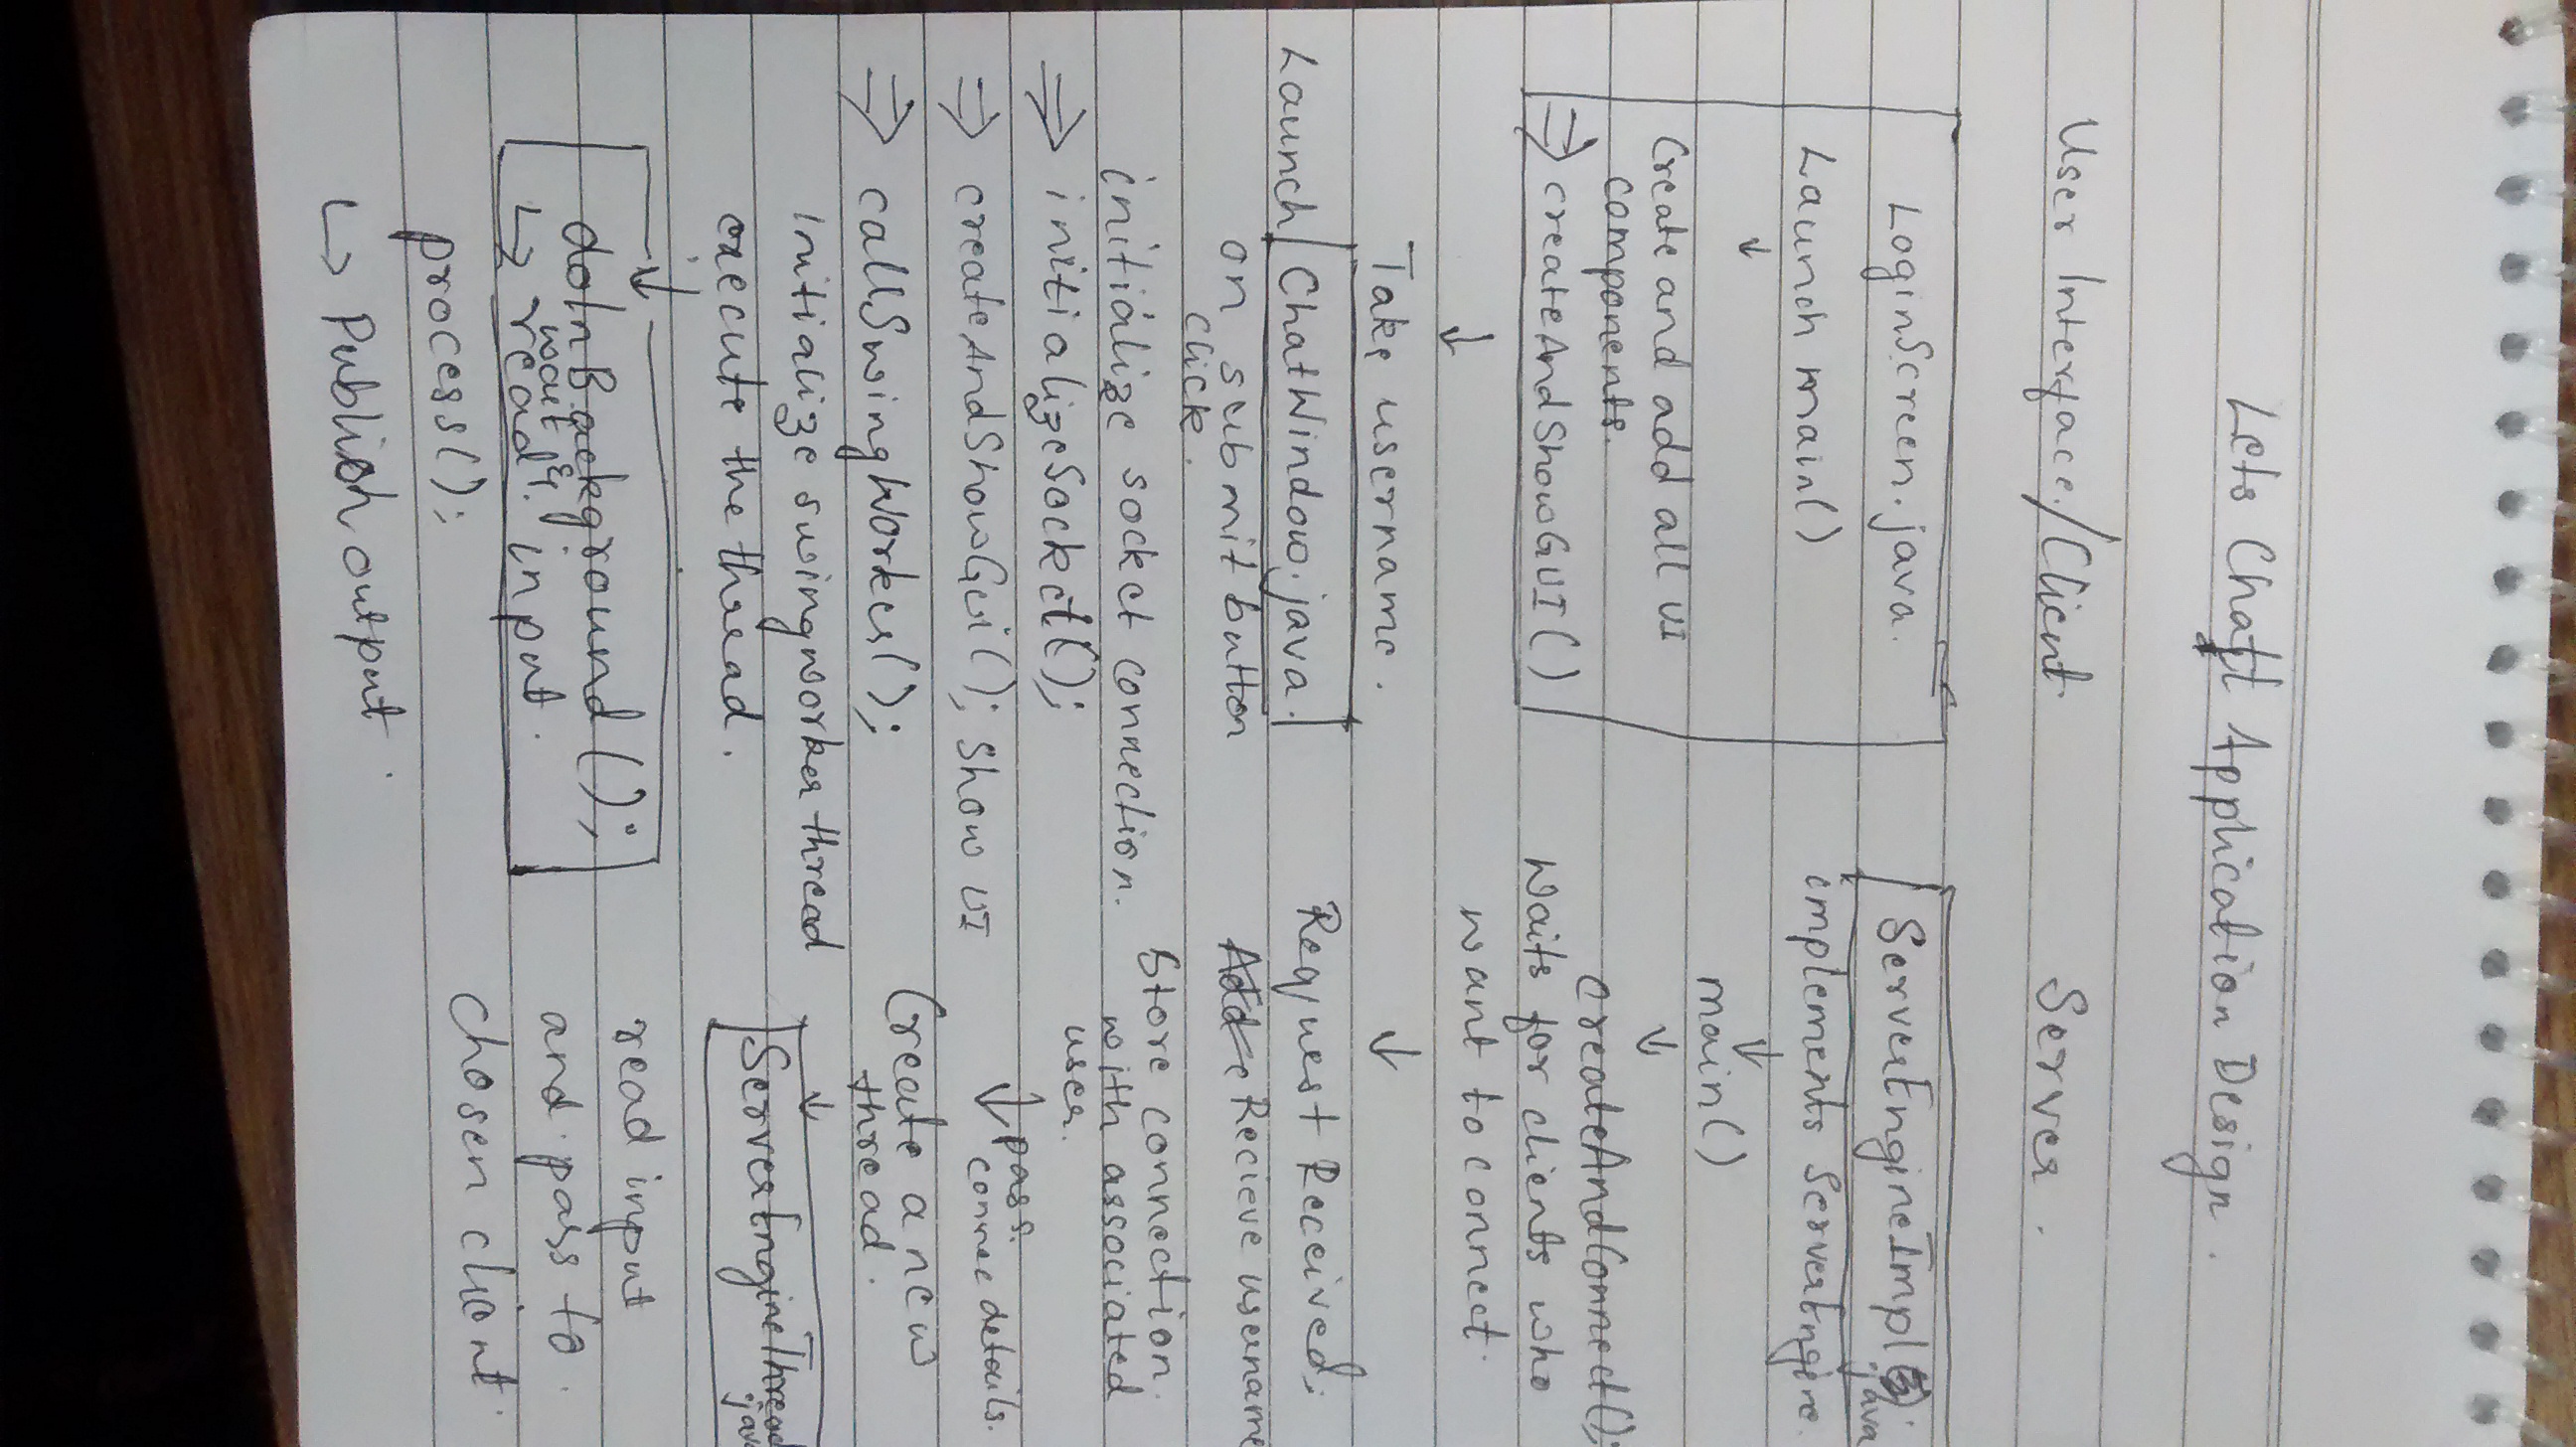 Lets Chat Application Design.
User Interface/Client
LoginScreen.java.
Launch main()
↓
Create and add all UI
components.
⇒ createAndShowGUI()
↓
Take username.
Launch ChatWindow.java.
on submit button
click.
initialize socket connection.
⇒ initializeSocket();
⇒ createAndShowGui(); Show UI
⇒ callSwingWorker();
Initialize swingworker thread
execute the thread.
↓
doInBackground();
wait &
↳ read input.
process();
↳ Publish output.
Server.
ServerEngineImpl.java
implements ServerEngine.
↓
main()
↓
createAndConnect();
Waits for clients who
want to connect.
↓
Request Received;
Recieve username
Store connection
with associated
user.
↓ pass
connec details.
Create a new
thread.
↓
ServerEngineThread
.java
read input
and pass to
chosen client.